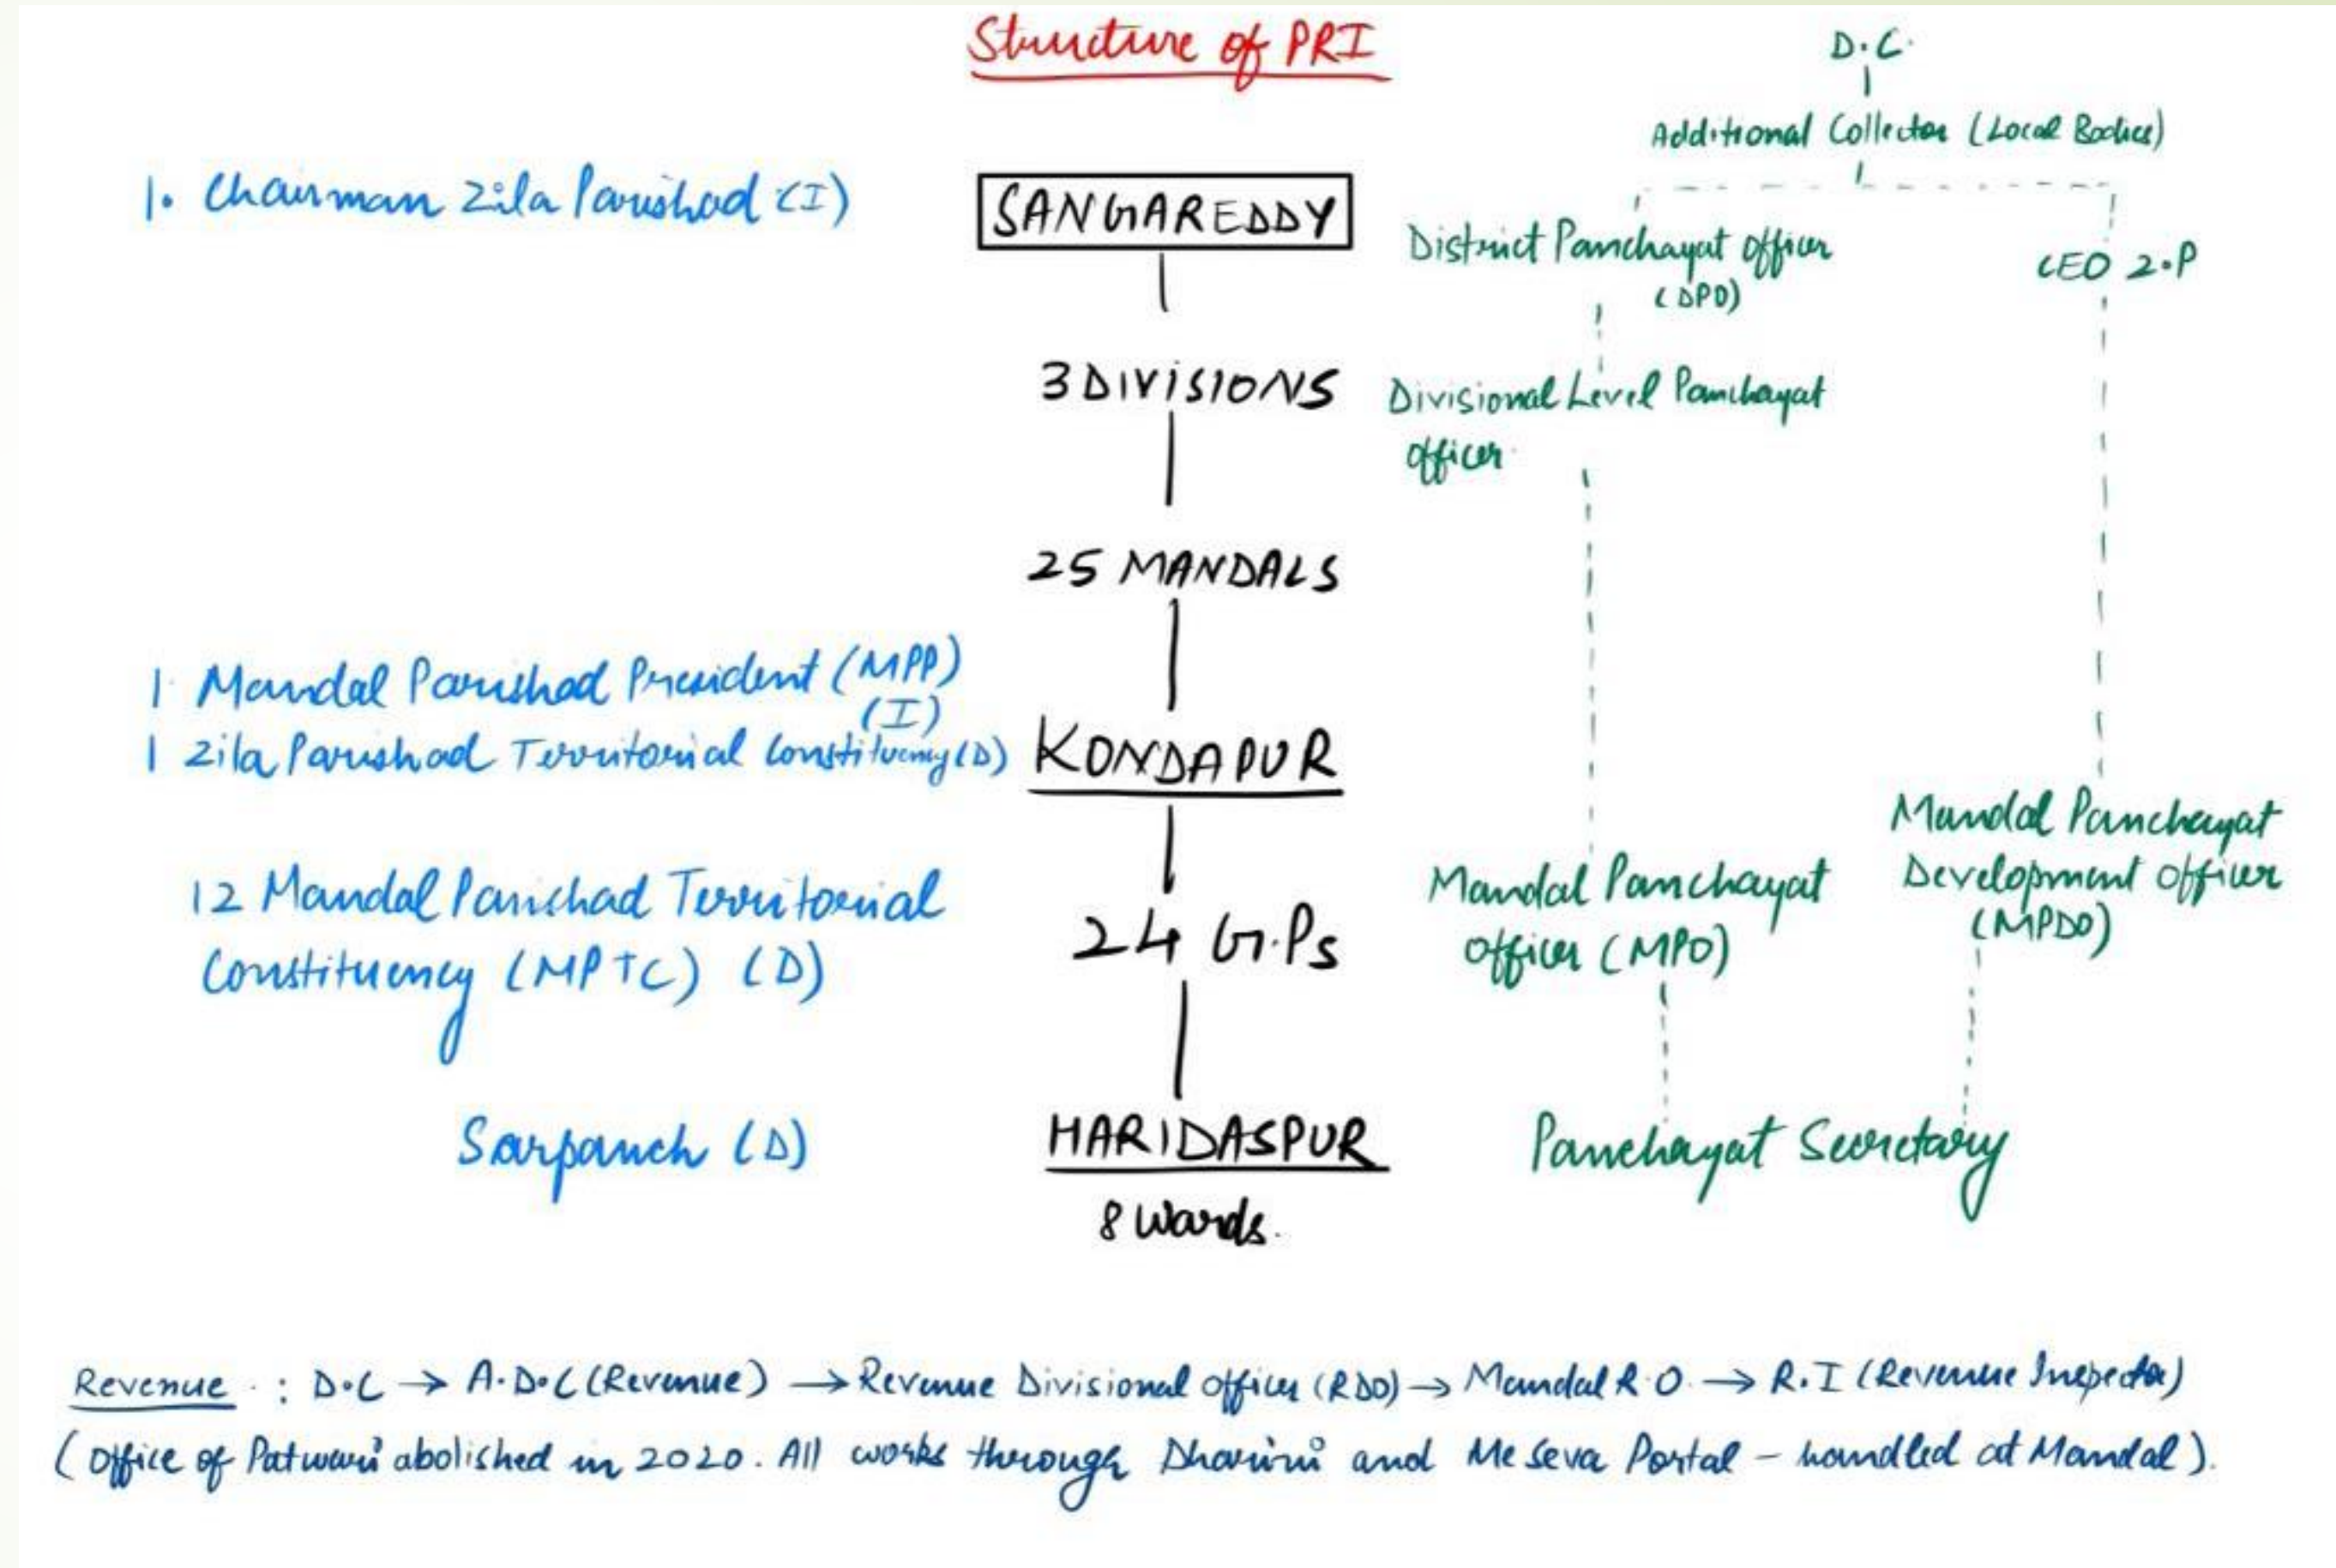 Structure of PRI
D.C.
Additional Collector (Local Bodies)
1. Chairman Zila Parishad (I)
SANGAREDDY
District Panchayat Officer
(DPO)
CEO Z.P
3 DIVISIONS
Divisional Level Panchayat
Officer
25 MANDALS
1 Mandal Parishad President (MPP)
(I)
1 Zila Parishad Territorial Constituency (D)
KONDAPUR
12 Mandal Parishad Territorial
Constituency (MPTC) (D)
24 G.Ps
Mandal Panchayat
Officer (MPO)
Mandal Panchayat
Development Officer
(MPDO)
Sarpanch (D)
HARIDASPUR
8 Wards.
Panchayat Secretary
Revenue : D.C → A.D.C (Revenue) → Revenue Divisional Officer (RDO) → Mandal R.O. → R.I (Revenue Inspector)
(Office of Patwari abolished in 2020. All works through Dharini and Me Seva Portal – handled at Mandal).